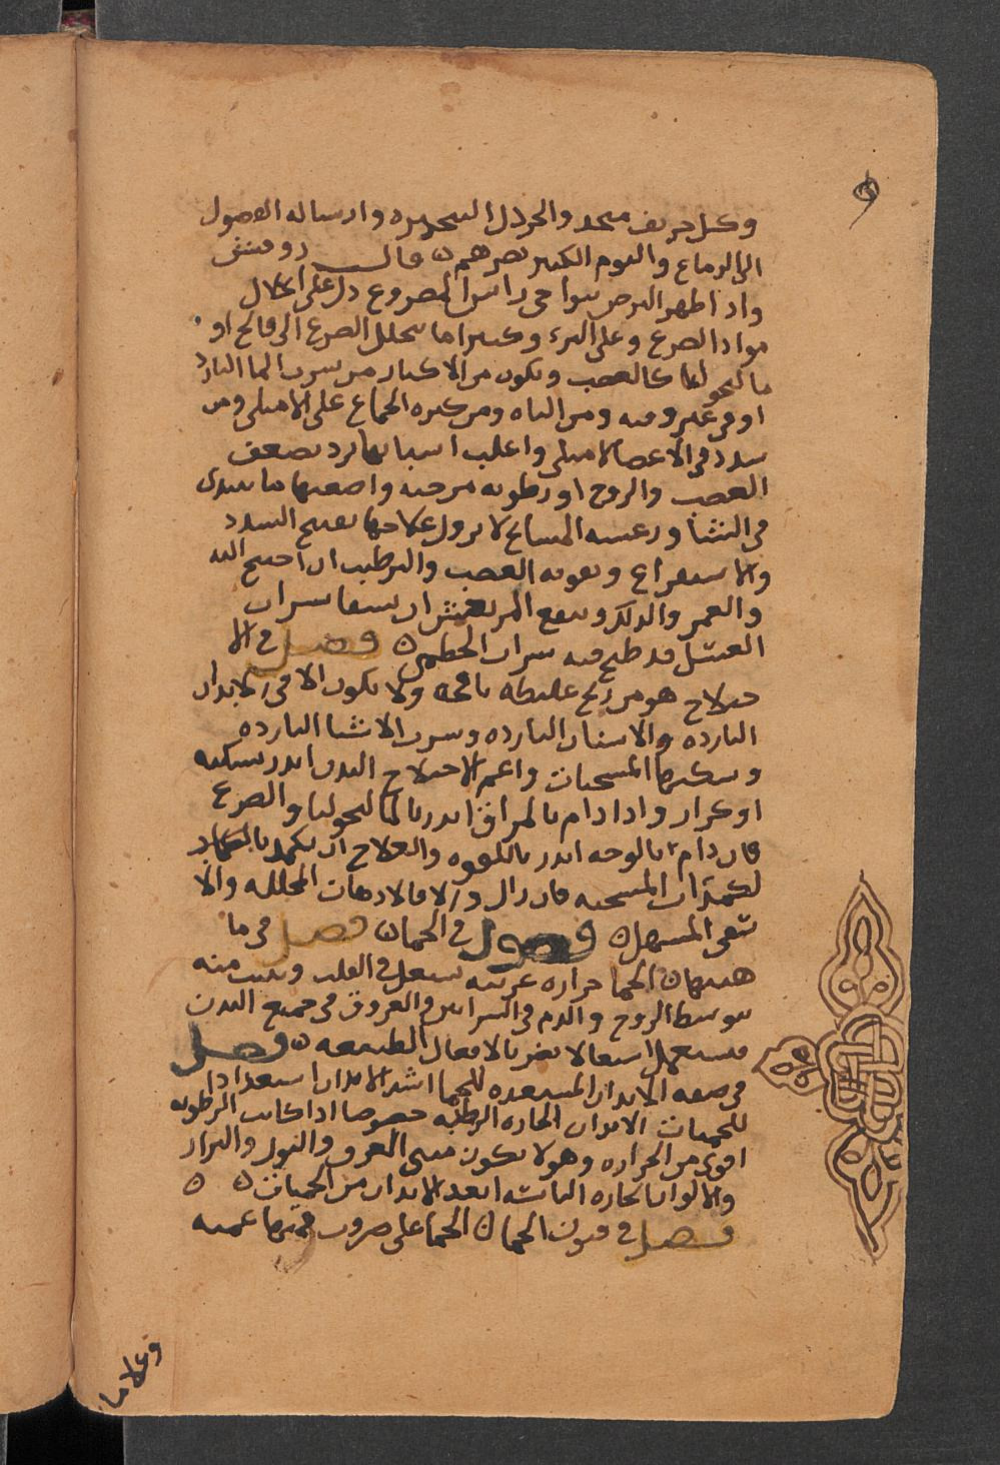 وكل حريف مبخر والخردل الشديده وارساله الفصول
الى الدماغ والنوم الكثير يضرهم ٥ قال روفس
واذا ظهر البرص بنواحي راس المصروع دل على انحلال
مواد الصرع وعلى البرء وكثيرا ما ينحل الصرع الى فالج او
مالنحوليا كالعصب وتكون من الاكثار من شرب الما البارد
او في غير وقته ومن الباه ومن كثره الجماع على الامتلى ومن
سدد في الاعضا لامتلى واغلب اسبابها برد يضعف
العصب والروح او رطوبه مرخيه واصعبها ما يبتدى
في النشا ورعشه المشايخ لا تزول علاجها تفتيح السدد
والاستفراغ وتقويه العصب والترطيب ان احتيج اليه
والغمز والدلك وينفع المرتعش ان يسقا شراب
العسل قد طبخ فيه الخطمى ٥ فصل في الا
ختلاج هو من ريح غليظه نافخه ولا يكون الا في الابدان
البارده والاسنان البارده وشرب الاشيا البارده
ويسكنها المسخنات واعم الاختلاج البدن انذر بسكته
او كزاز واذا دام بالمراق انذر بالمالنحوليا والصرع
فان دام بالوجه انذر باللقوه والعلاج ان يكمد بالكماد
لكمدات المسخنه فان زال والا فالادهان المحلله والا
سقى المسهل ٥ فصول في الحميات فصل في ما
هيتها ٥ الحما حراره غريبه تشتعل في القلب وتنبث منه
بتوسط الروح والدم في الشرايين والعروق في جميع البدن
فتشتعل اشتعالا يضر بالافعال الطبيعيه ٥ فصل
في صفه الابدان المستعده للحما اشد الابدان استعدادا
للحميات الابدان الحاره الرطبه خصوصا اذا كانت الرطوبه
اقوى من الحراره وهولا يكون منتنى العرق والبول والبراز
والابدان الحاره اليابسه ابعد الابدان من الحميات ٥ ٥
فصل في فنون الحميات الحما على ضروب فمنها عميه
وعلاما